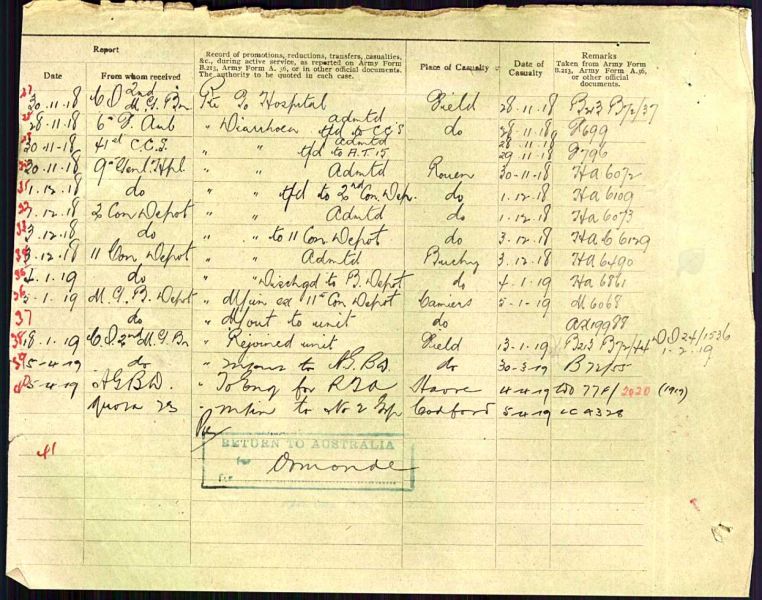 Report
Record of promotions, reductions, transfers, casualties, &c., during active service, as reported on Army Form B.213, Army Form A. 36, or in other official documents. The authority to be quoted in each case.
Place of Casualty
Date of Casualty
Remarks
Taken from Army Form B.213, Army Form A.36, or other official documents.
Date From whom received
27 30.11.18 C.O 2nd M.G.Bn Pte To Hospital Field 28.11.18 B213 B72/37
28-11-18 6th F. Amb " Diarrhoea admtd tfd to CCS do 28.11.18 F699
20.11.18 41st C.C.S. " " admtd tfd to A.T.15 28.11.18 29.11.18 J796
30.11.18 9th Genl. Hpl " " Admtd Rouen 30-11-18 Ha 6072
31 1.12.18 do " " tfd to 2nd Con. Dep. do 1.12.18 Ha 6109
7.12.18 2 Con Depot " " Admtd do 1.12.18 Ha 6073
3.12.18 do " " to 11 Con Depot do 3.12.18 Ha 6129
3.12.18 11 Con Depot " " Admtd Buchy 3.12.18 Ha 6490
4.1.19 do " Dischgd to B. Depot do 4.1.19 Ha 6861
36 5-1.19 M.G.B. Depot " M/in ex 11th Con Depot Camiers 5-1.19 M6068
37 do " M/out to unit do
38 18.1.19 C.O. 2nd M.G Bn " Rejoined unit Field 13-1.19 B213 B72/44 DD 24/1536 1-2.19
39 5-4-19 do " to A.G.B.D. do 30-3-19 B72/55
5-4-19 A.G.B.D. " To Eng for R.T.A Havre 4-4-19 2020 (1919)
" m/in to No 2 Grp Codford 5.4.19 4328
41
RETURN TO AUSTRALIA
Ormonde